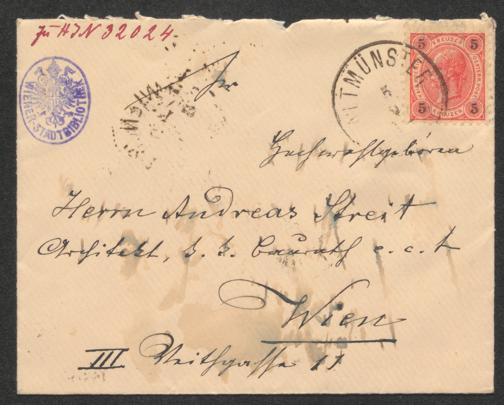 Zu HIN 32024.
WIENER-STADTBIBLIOTHEK
WIEN
ALTMÜNSTER
5 5
5 5
Sr
Hochwohlgeboren
Herrn Andreas Streit
Architekt, k. k. Baurath e.c.t
Wien
III Veithgasse 11